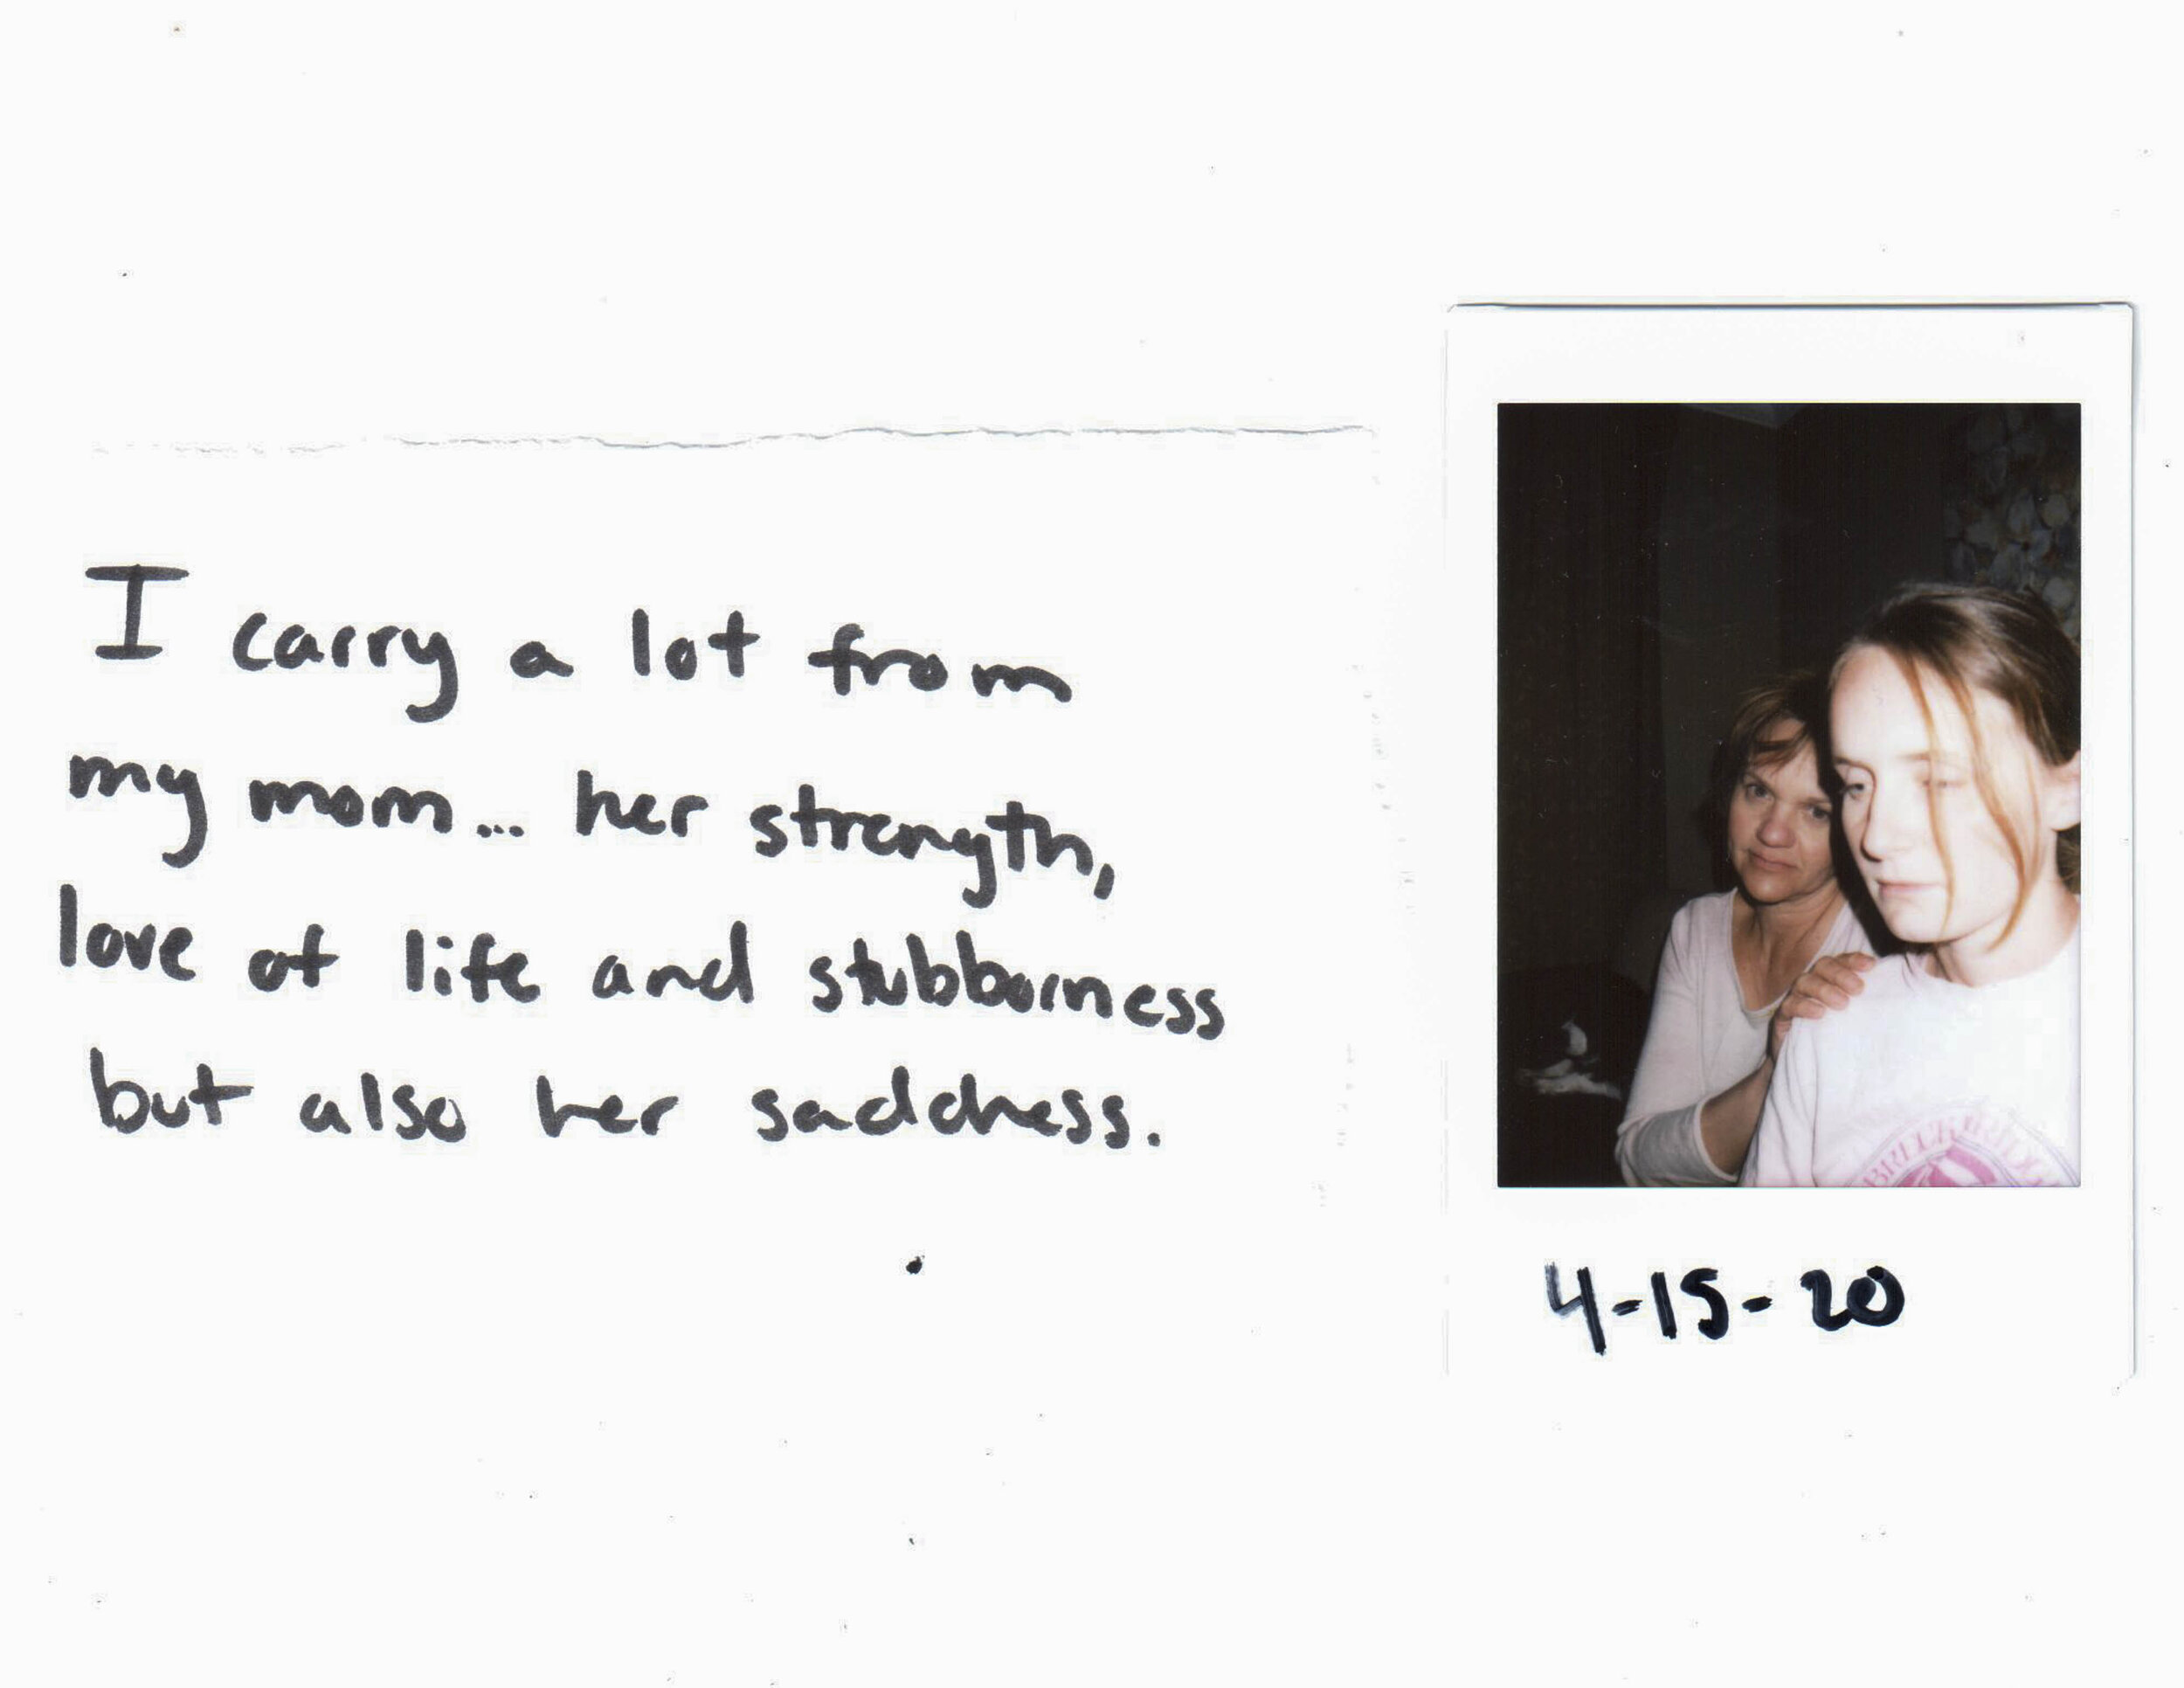 I carry a lot from
my mom... her strength,
love of life and stubborness
but also her saddness.
BRECKENRIDGE
4-15-20